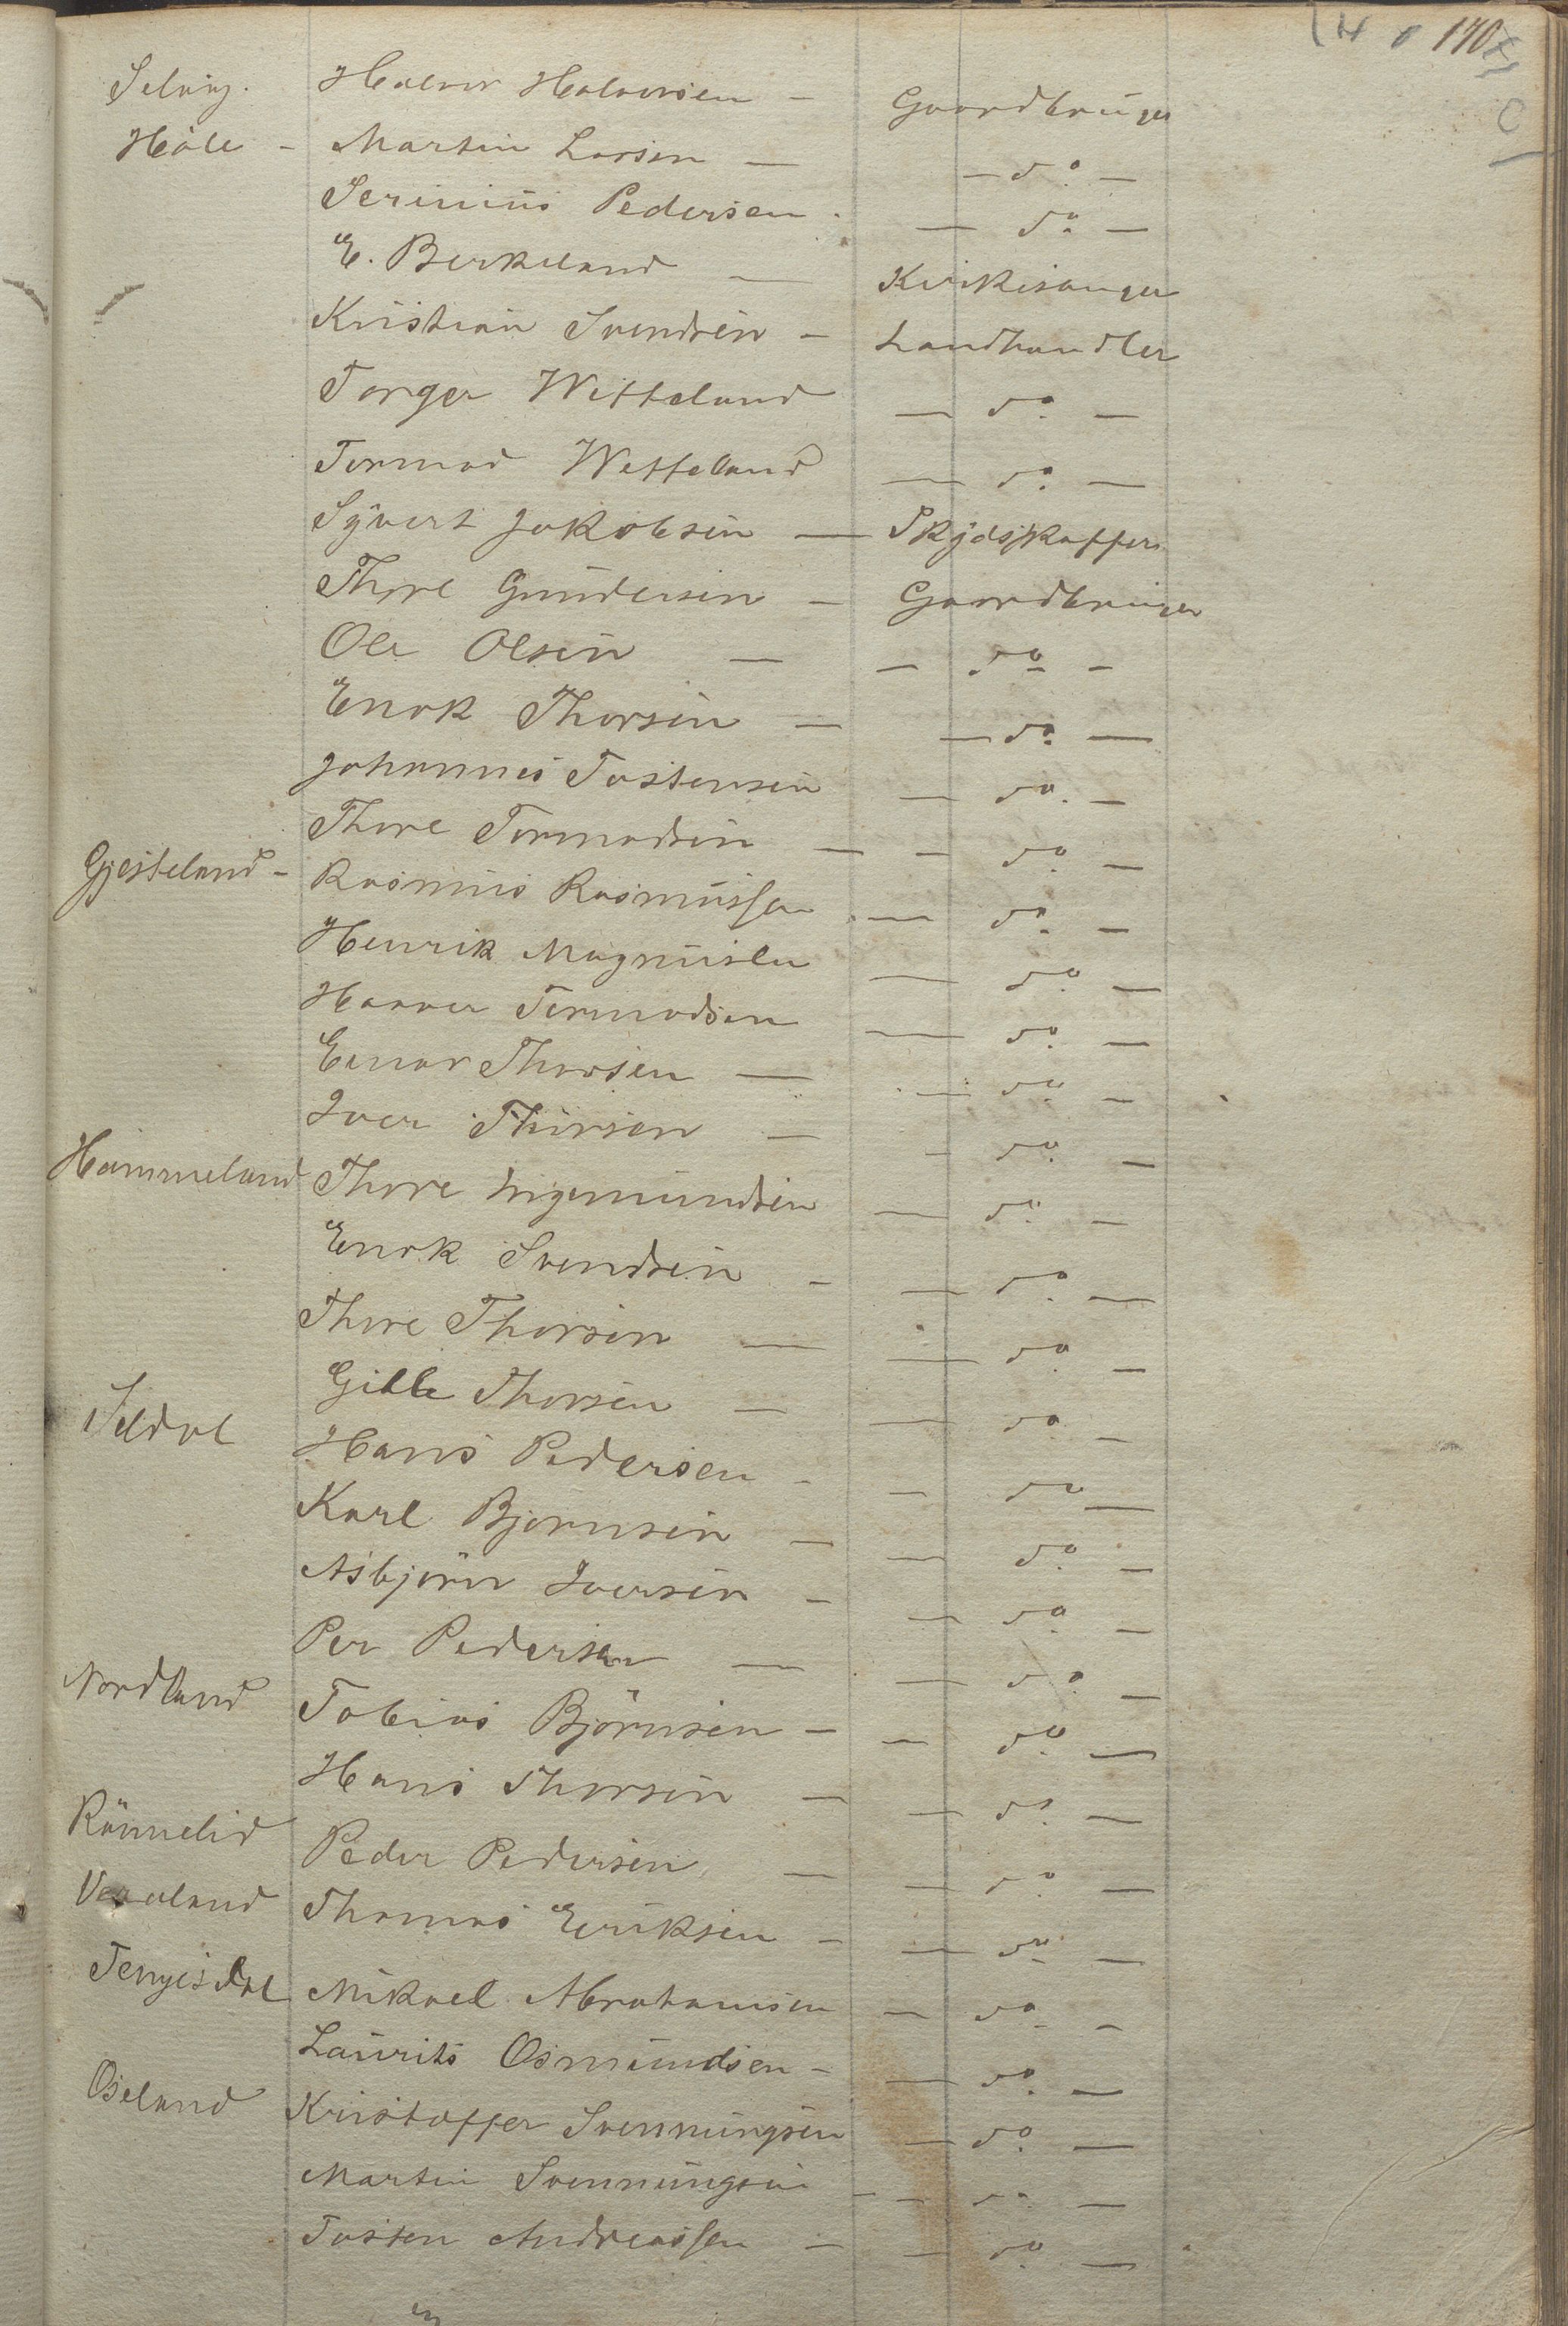 170
Selvig. Halvor Halvorsen — Gaardbruger
Høle - Martin Larsen — — do —
Serinius Pedersen. — do —
E. Berkeland — Kirkesanger
Kristian Svendsen — Landhandler
Torger Wetteland — do —
Tormod Wetteland — do —
Syvert Jakobsen — Skydsskaffer
Thore Gundersen — Gaardbruger
Ole Olsen — — do —
Enok Thorsen — — do —
Johannes Tostensen — do. —
Thore Tormodsen — — do —
Gjesteland - Rasmus Rasmussen — do —
Henrik Magnusen — do —
Haaver Tormodsen — do —
Einar Thorsen — — do —
Iver Thorsen — - do —
Hammeland Thore Ingemundsen — do —
Enok Svendsen - — do —
Thore Thorsen — — do —
Gitle Thorsen — — do —
Seldal Hans Pedersen - — do —
Karl Bjornsen — — do —
Asbjørn Iversen — — do —
Per Pedersen — — do —
Nordland Tobias Bjørnsen — — do —
Hans Thorsen — — do —
Rønnelid Peder Pedersen — — do —
Thomas Eriksen — — do —
Tengesdal Mikael Abrahamsen — do —
Laurits Osmundsen — — do —
Oseland Kristoffer Svenningsen — do —
Martin Svenningsen — — do —
Tosten Andreassen — — do —